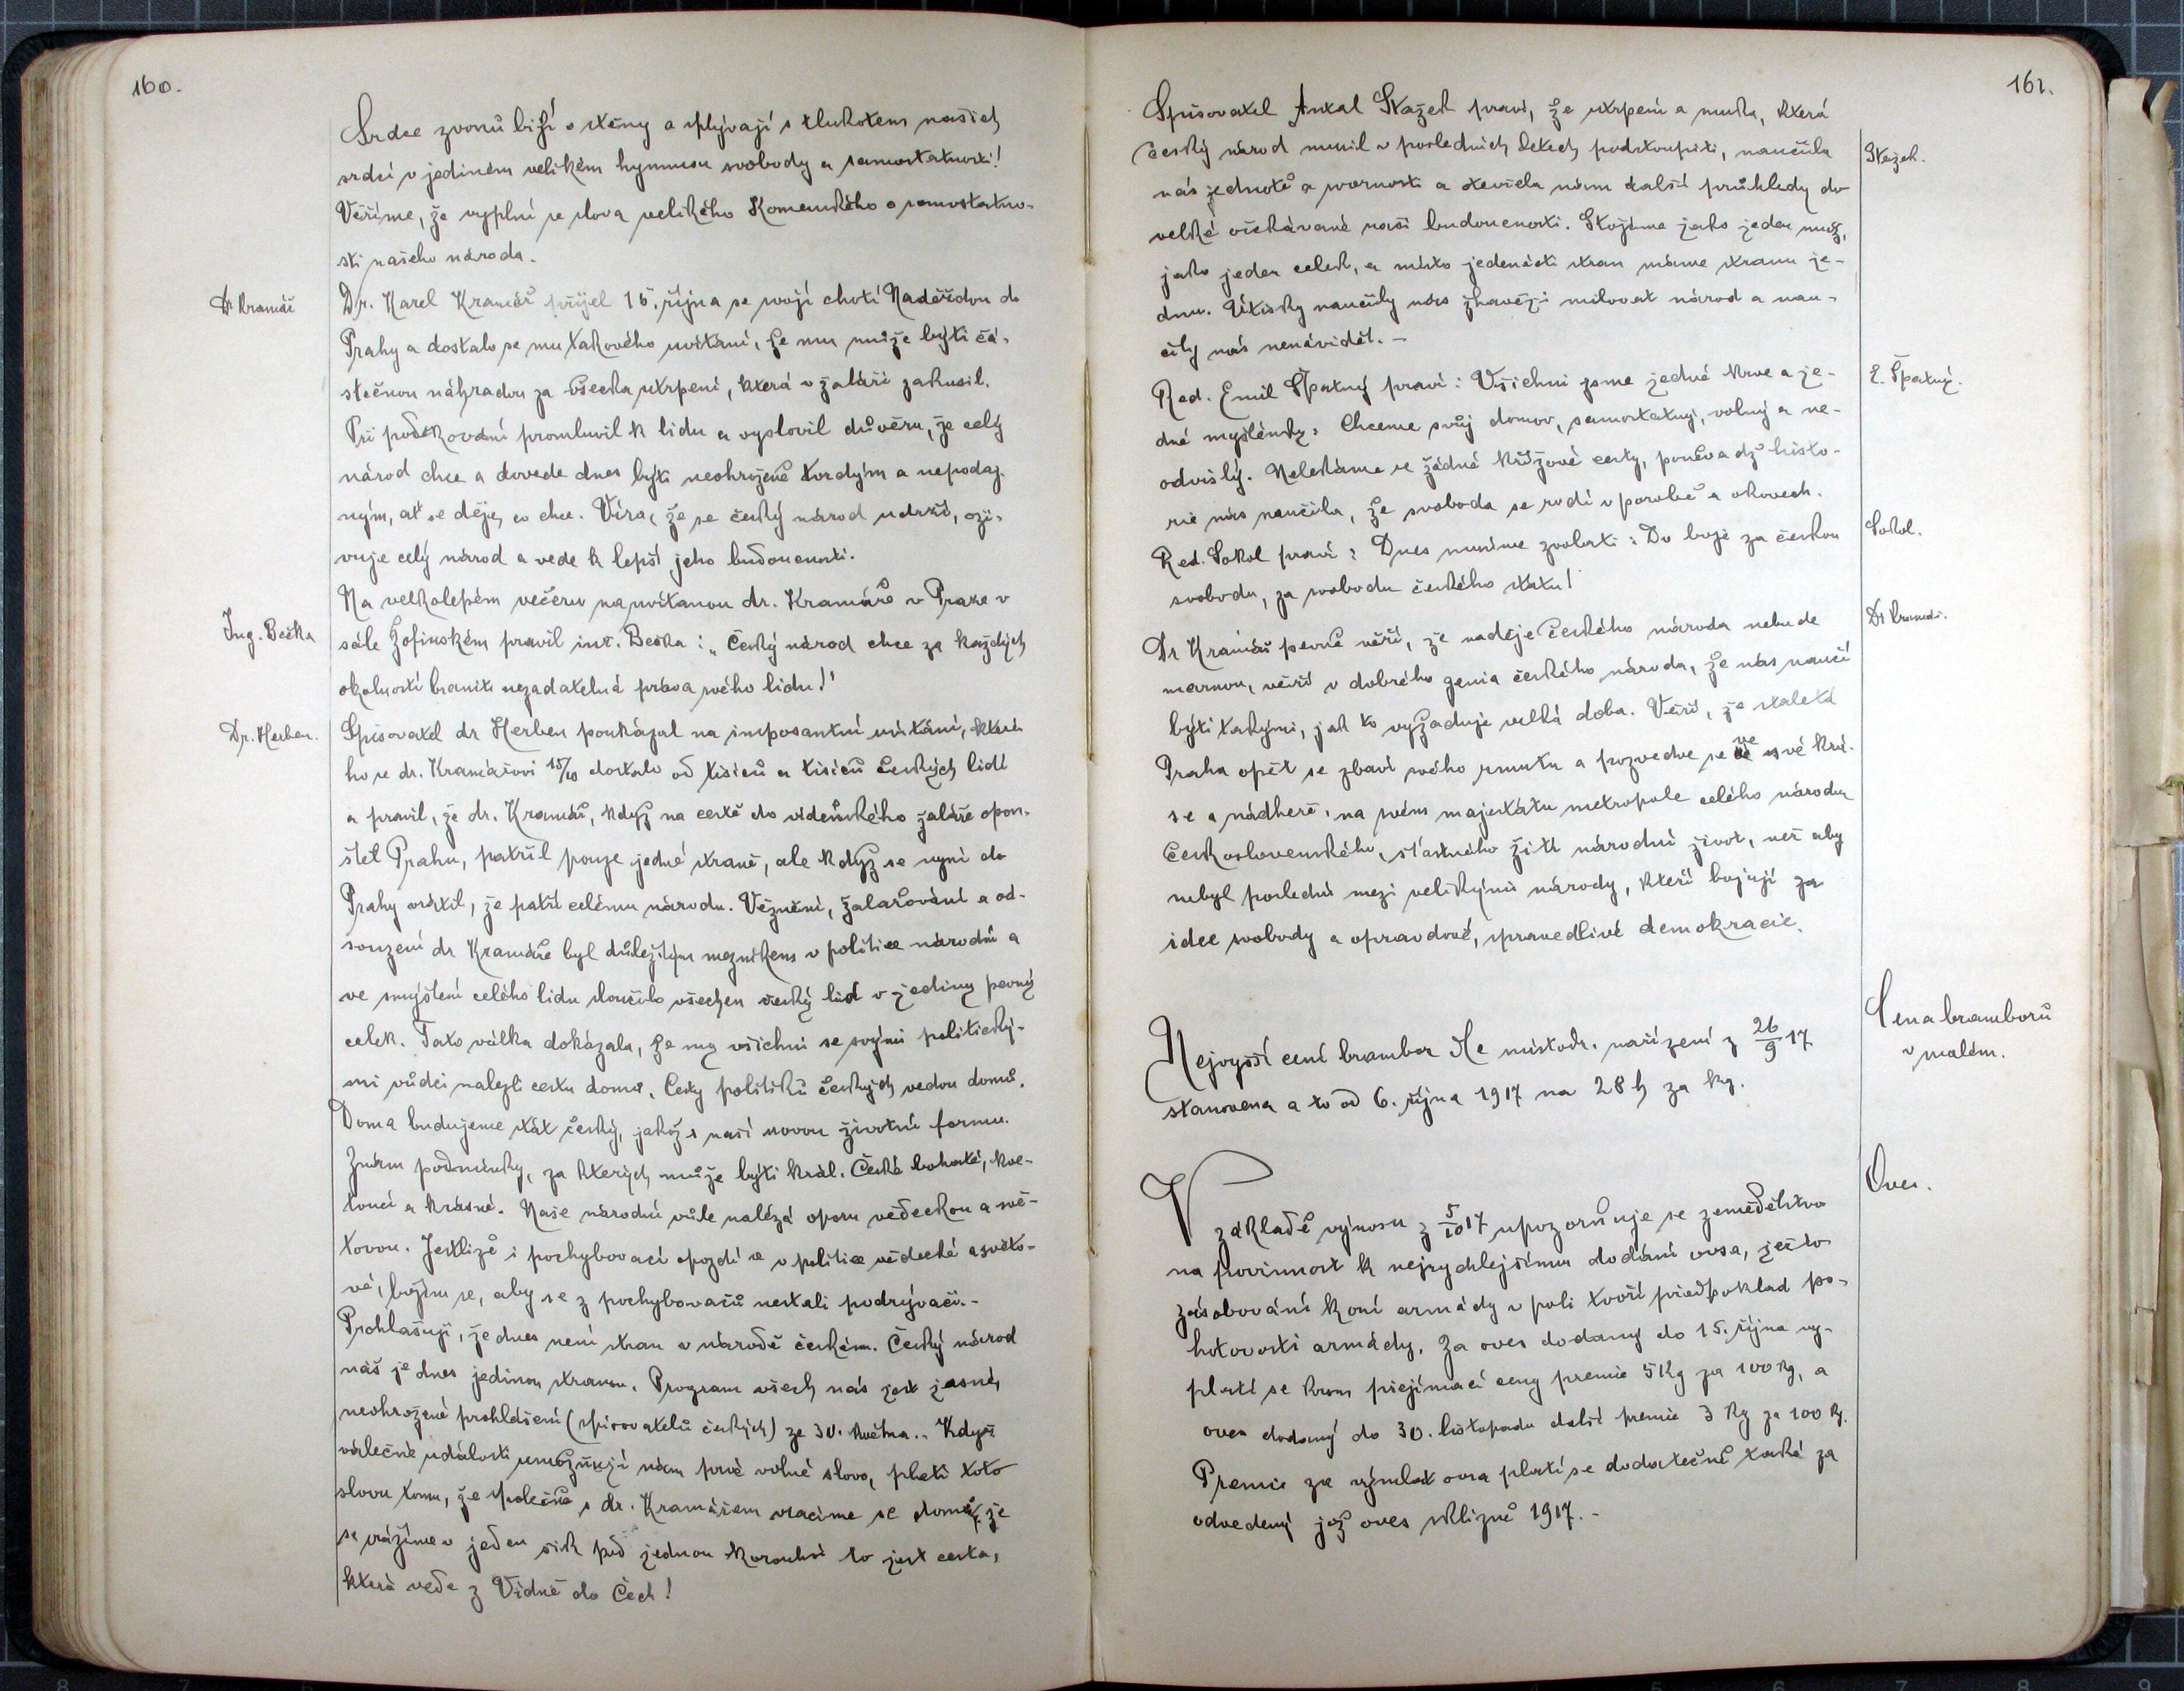 160.
Srdce zvonů bijí o stěny a splývají s tlukotem našich
srdcí v jediném velikém hymnusu svobody a samostatnosti!
Věříme, že vyplní se slova velikého Komenského o samostatno-
sti našeho národa.
Dr Kramář
Dr. Karel Kramář přijel 15. října se svojí chotí Naděždou do
Prahy a dostalo se mu takového uvítání, že mu může býti čá-
stečnou náhradou za všecka utrpení, která v žaláři zakusil.
Při poděkování promluvil k lidu a vyslovil důvěru, že celý
národ chce a dovede dnes býti neohroženě tvrdým a nepodaj-
ným, ať se děje, co chce. Víra, že se český národ udrží, ozi-
vuje celý národ a vede k lepší jeho budoucnosti.
Na velkolepém večeru na uvítanou dr. Kramáře v Praze v
Ing. Bečka
sále Žofínském pravil inž. Bečka: „Český národ chce za každých
okolností brániti nezadatelná práva svého lidu!"
Dr. Herben.
Spisovatel dr Herben poukázal na imposantní uvítání, které-
ho se dr. Kramářovi 15/10 dostalo od tisíců a tisíců českých lidí
a pravil, že dr. Kramář, když na cestě do vídeňského žaláře opou-
štěl Prahu, patřil pouze jedné straně, ale když se nyní do
Prahy vrátil, že patří celému národu. Věznění, žalařování a od-
souzení dr Kramáře byl důležitým mezníkem v politice národní a
ve smýšlení celého lidu sloučilo všechen český lid v jediny pevný
celek. Tato válka dokázala, že my všichni se svými politický-
mi vůdci nalezli cestu domů. Cesty politiků českých vedou domů.
Doma budujeme stát český, jakož i naší novou životní formu.
Znám podmínky, za kterých může býti král. České bohaté, kve-
toucí a krásné. Naše národní vůle nalézá oporu vědeckou a svě-
tovou. Jestliže i pochybovači opozdí se v politice vědecké a světo-
vé, bojím se, aby se z pochybovačů nestali podrývači.-
Prohlašuji, že dnes není stran v národě českém. Český národ
náš je dnes jedinou stranou. Program všech nás jest jasné,
neohrožené prohlášení (spisovatelů českých) ze 30. května.. Když
válečné události umožňují nám prvé volné slovo, platí toto
slovu tomu, že společně s dr. Kramářem vracíme se domů, že
se srážíme v jeden šik pod jednou korouhví to jest cesta,
která vede z Vídně do Čech!
161.
Spisovatel Antal Stašek praví, že utrpení a muka, která
český národ musil v posledních letech podstoupiti, naučila
Stašek.
nás jednotě a svornosti a otevřela nám další průhledy do
velké očekávané naší budoucnosti. Stojíme jako jeden muž,
jako jeden celek, a místo jedenácti stran máme stranu je-
dnu. Útisky naučily nás žhavěji milovat národ a nau-
čily nás nenávidět. -
Red. Emil Špatný praví: Všichni jsme jedné krve a je-
E. Špatný.
dné myšlénky: Chceme svůj domov, samostatný, volný a ne-
odvislý. Nelekáme se žádné křížové cesty, poněvadž histo-
rie nás naučila, že svoboda se rodí v porobě a okovech.
Red. Sokol praví: Dnes musíme zvolati: Do boje za českou
Sokol.
svobodu, za svobodu českého státu!
Dr Kramář pevně věří, že naděje českého národa nebude
Dr Kramář.
marnou, věří v dobrého genia českého národa, že nás naučí
býti takými, jak to vyžaduje velká doba. Věří, že staletá
Praha opět se zbaví svého smutku a pozvedne se ve své krá-
se a nádheře, na svém majestátu metropole celého národu
Československého, šťastného žíti národní život, než aby
nebyl poslední mezi velikými národy, kteří bojují za
idee svobody a opravdové, spravedlivé demokracie.
Cena bramborů
v malém.
Nejvyšší cena brambor dle místodr. nařízení z 26/9 17
stanovena a to od 6. října 1917 na 28 h za kg.
Oves.
V základě výnosu z 5/10 17 upozorňuje se zemědělstvo
na povinnost k nejrychlejšímu dodání ovsa, ježto
zásobování koní armády v poli tvoří předpoklad po-
hotovosti armády. Za oves dodaný do 15. října vy-
platí se krom přejímací ceny premie 5 Kg za 100 kg, a
oves dodaný do 30. listopadu další premie 3 Kg za 100 kg.
Premie za výmlat ovsa platí se dodatečně také za
odvedený již oves sklizně 1917. -